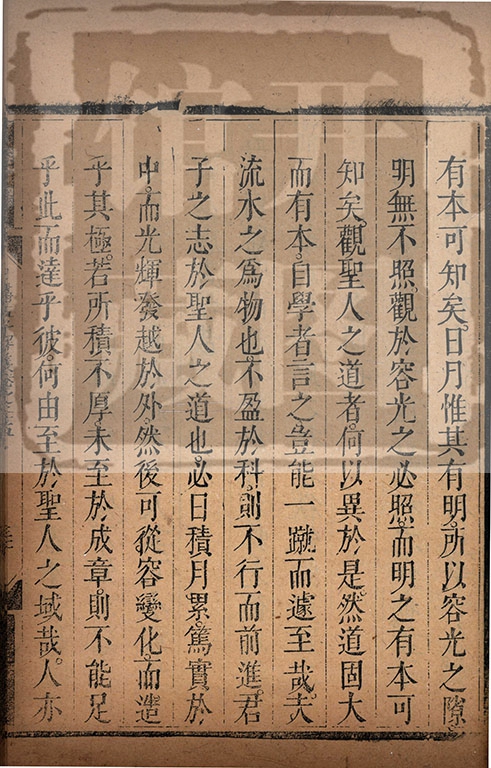 有本可知矣。日月惟其有明。所以容光之隙。
明無不照。觀於容光之必照。而明之有本可
知矣。觀聖人之道者。何以異於是。然道固大
而有本。自學者言之。豈能一蹴而遽至哉。夫
流水之爲物也。不盈於科。則不行而前進。君
子之志於聖人之道也。必日積月累。篤實於
中。而光輝發越於外。然後可從容變化。而造
乎其極。若所積不厚。未至於成章。則不能足
乎此而達乎彼。何由至於聖人之域哉。人亦